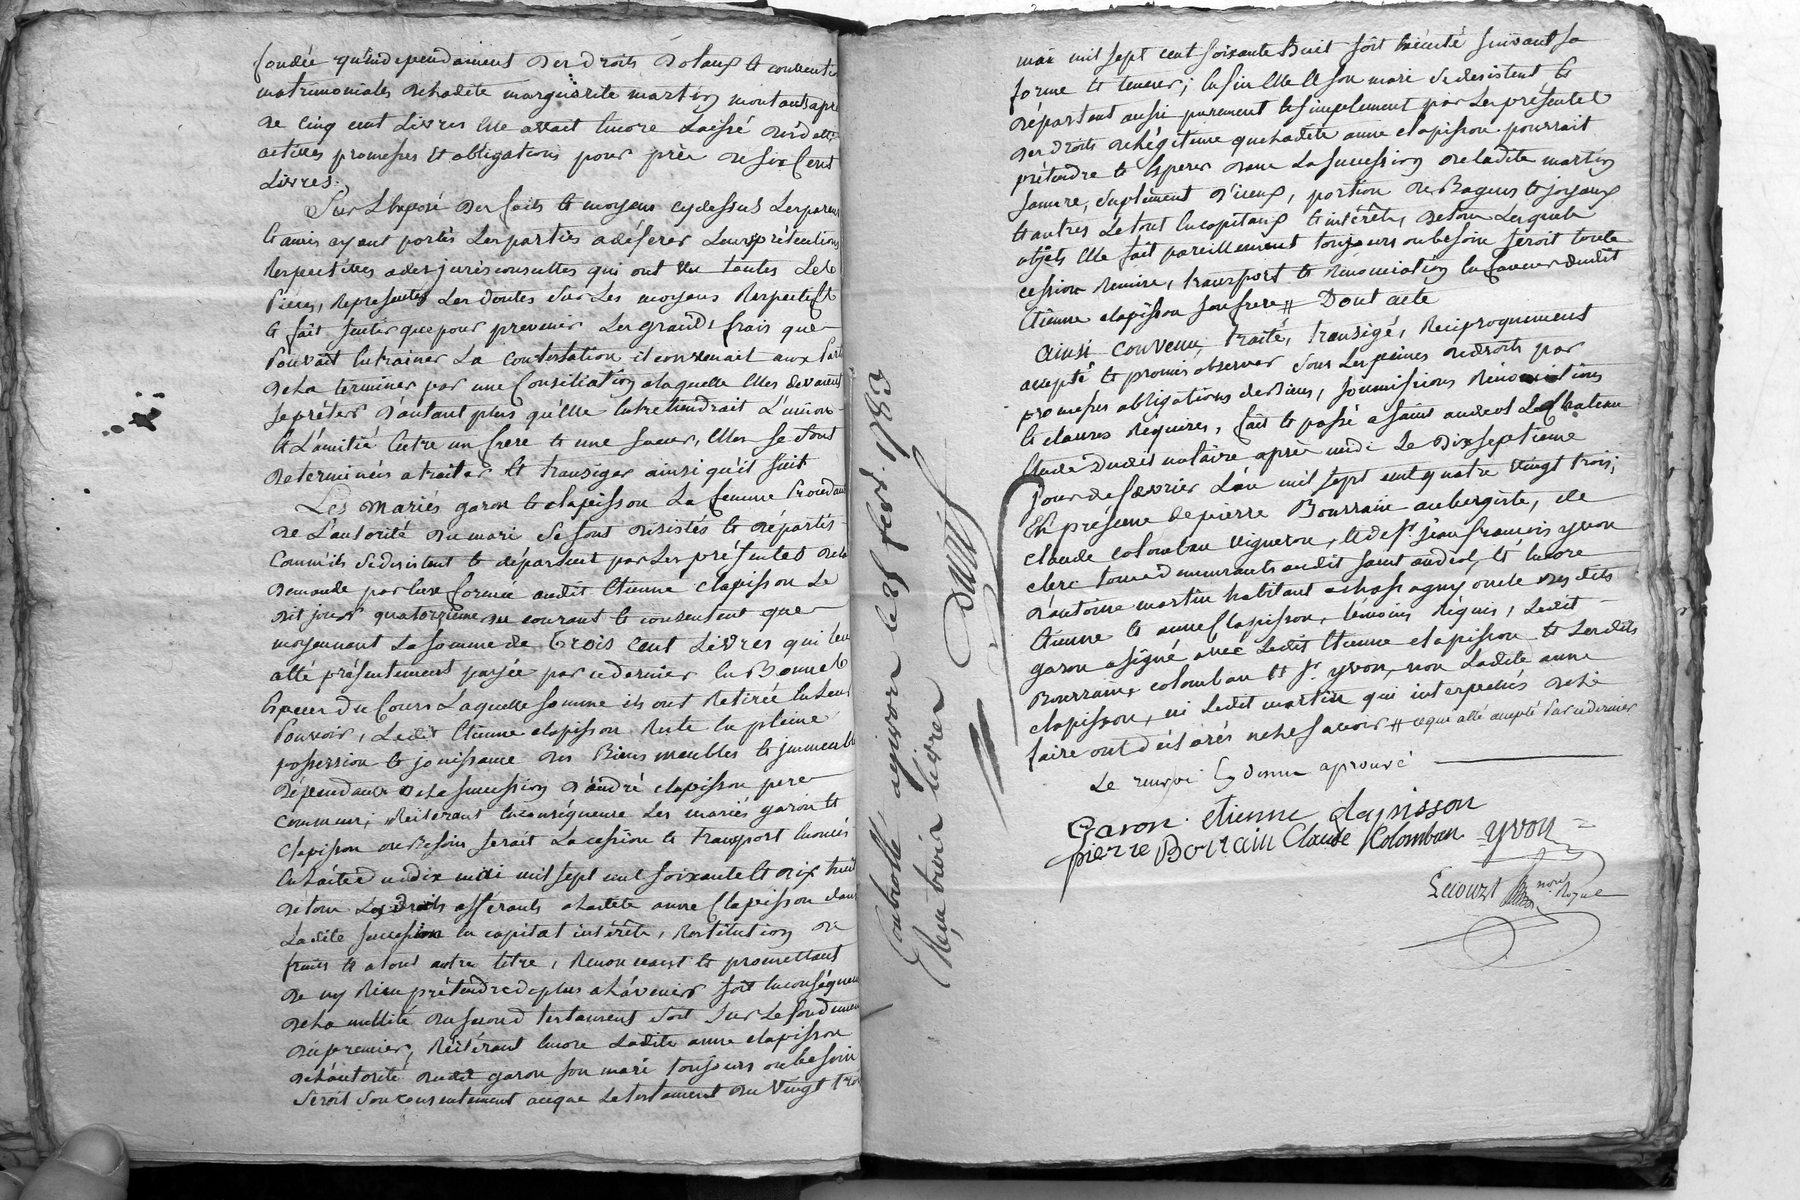 fondée qu'independament des droits dotaux et conventions
matrimoniales de ladite marguerite martin montants a pres
de cinq cent Livres elle avait encore Laissé des dettes
actives promesses et obligations pour près de six Cent
Livres.
Sur L'exposé des faits et moyens cy dessus Les parens
et amis ayant portés Les parties a déferer Leurs prétentions
Respectives a des jurisconsultes qui ont vu toutes Les
Pieces, Representes Les doutes sur Les moyens Respectifs
et fait sentir que pour prevenir Les grands frais que
Pouvait Entrainer La Contestation il convenait aux Parties
de La terminer par une Consiliation a laquelle Elles devaient
se préter d'autant plus qu'Elle Entretiendrait L'union
et L'amitié Entre un frere et une soeur, Elles se sont
determinées a traiter et transiger ainsi qu'il suit
Les Mariés garon et clapisson La femme Procedant
de L'autorité du mari se sont desistés et départis
Comme ils se desistent et départent par Les présentes de la
demande par Eux formée audit Etienne clapisson Le
dit jour quatorzieme du courant et consentent que
moyennant La somme de trois cent Livres qui Leur
a été présentement payée par ce dernier En Bonnes
Especes du Cours Laquelle somme ils ont Retirée En Leur
Pouvoir, Ledit Etienne clapisson Reste En pleine
possession et jouissance des Biens meubles et immeubles
dépendants de La succession d'andré clapisson pere
commun; Reiterant En conséquence Les mariés garon et
clapisson ou Besoin serait La cession et transport Enoncés
En L'acte du dix mai mil sept cent soixante et dix huit
de tous Les droits afférants a Ladite anne Clapisson dans
Ladite succession En capital intérêts, Restitution de
fruits et a tout autre titre, Renonceant et promettant
de ny Rien prétendre de plus a L'avenir soit En conséquence
de La nullité du second testament soit sur Le fondement
du premier, Réitérant Encore Ladite anne clapisson
de L'autorité dudit garon son mari toujours ou besoin
seroit son consentement a ce que Le testament du vingt trois
mai mil sept cent soixante huit soit Exécuté suivant sa
forme et teneur; Enfin Elle et son mari se desistent et
départent aussi purement et simplement par Les présentes
des droits de Légitime que Ladite anne clapisson pourrait
prétendre et Esperer dans La succession de ladite martin
sa mere, suplement d'iceux, portion de Bagues et joyaux
et autres Le tout En capitaux et intérêts, de tous Lesquels
objets Elle fait pareillement toujours ou besoin seroit toute
cession Remise, transport et Rénonciation En faveur dudit
Etienne clapisson son frere # Dont acte
Ainsi Convenu, traité, transigé, Reciproquement
accepté et promis observer sous Les peines de droits par
promesses obligations de Biens, soumissions Rénonciations
et clauses Réquises, fait et passé a Saint andeol Le Chateau
Etude dudit notaire après midi Le Dix septieme
jour de fevrier L'an mil sept cent quatre vingt trois,
En présence de pierre Bourrain aubergiste, de
claude colomban vigneron, et de sr. jean francois yvon
clerc tous demeurants audit Saint andéol, et Encore
d'antoine martin habitant a chassagny oncle desdits
Etienne et anne Clapisson, témoins Réquis, Ledit
garon a signé avec Ledit Etienne clapisson et Lesdits
Bourrain, colomban et sr. yvon, non Ladite anne
clapisson, ni Ledit martin qui interpellés de le
faire ont déclarés ne le savoir # ce qui a été accepté Par ce dernier
Le renvoi Cy dessus aprouvé
Garon. etienne clapisson
pierre Borrain Claude Kolomban yvon
Lecourt nore. Royal
Controllé a givors le 25 fevr. 1783